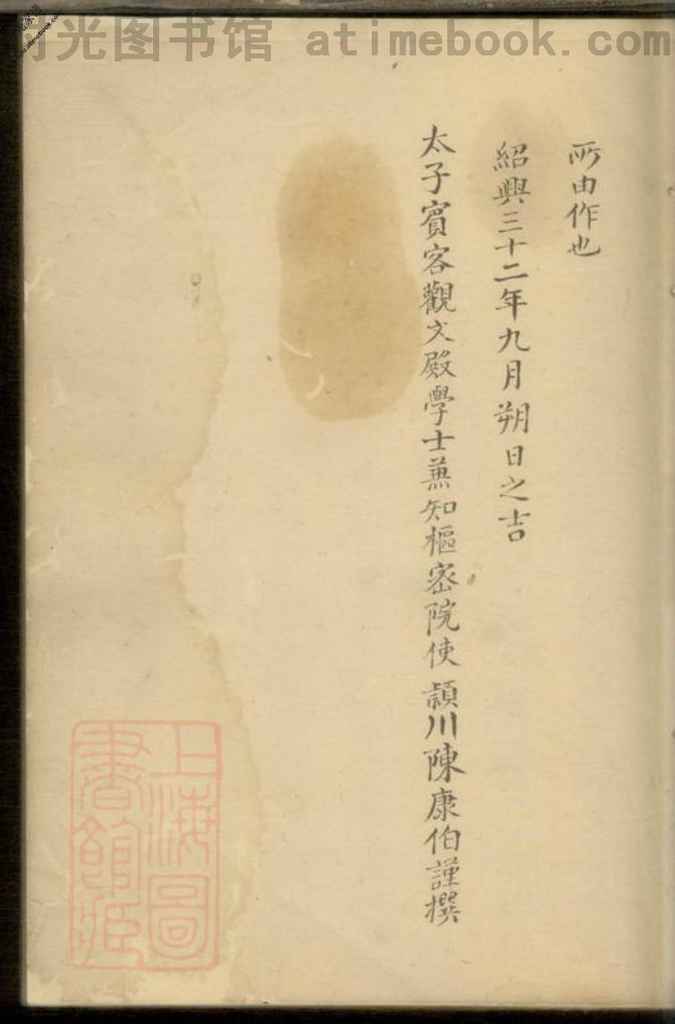 时光图书馆 atimebook.com
所由作也
紹興三十二年九月朔日之吉
太子賓客觀文殿學士兼知樞密院使潁川陳康伯謹撰
上海圖書館藏